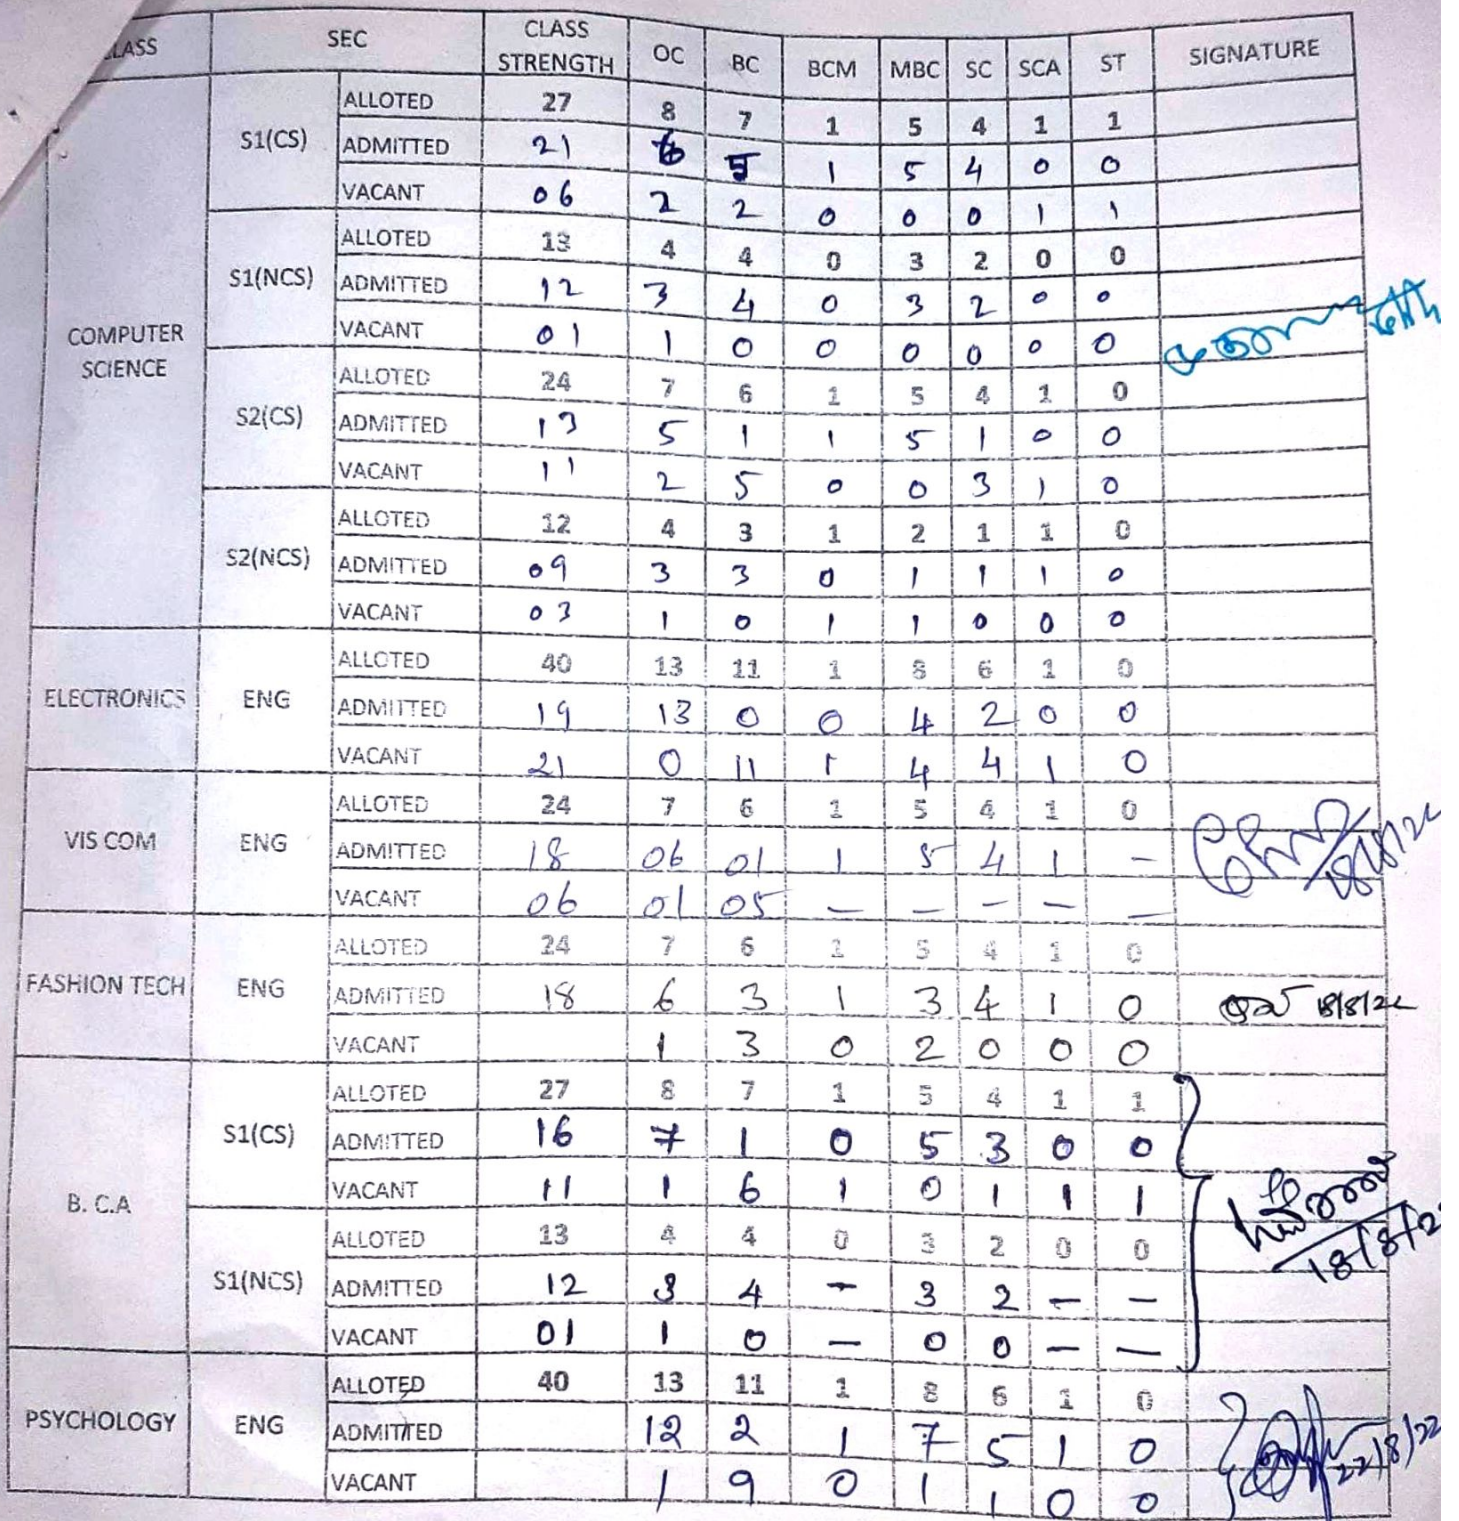 LASS SEC CLASS STRENGTH OC BC BCM MBC SC SCA ST SIGNATURE
COMPUTER SCIENCE
S1(CS)
ALLOTED 27 8 7 1 5 4 1 1
ADMITTED 21 6 5 1 5 4 0 0
VACANT 06 2 2 0 0 0 1 1
S1(NCS)
ALLOTED 13 4 4 0 3 2 0 0
ADMITTED 12 3 4 0 3 2 0 0
VACANT 01 1 0 0 0 0 0 0
S2(CS)
ALLOTED 24 7 6 1 5 4 1 0
ADMITTED 13 5 1 1 5 1 0 0
VACANT 11 2 5 0 0 3 1 0
S2(NCS)
ALLOTED 12 4 3 1 2 1 1 0
ADMITTED 09 3 3 0 1 1 1 0
VACANT 03 1 0 1 1 0 0 0
ELECTRONICS ENG
ALLOTED 40 13 11 1 8 6 1 0
ADMITTED 19 13 0 0 4 2 0 0
VACANT 21 0 11 1 4 4 1 0
VIS COM ENG
ALLOTED 24 7 6 1 5 4 1 0
ADMITTED 18 06 01 1 5 4 1 -
VACANT 06 01 05 - - - - -
FASHION TECH ENG
ALLOTED 24 7 6 1 5 4 1 0
ADMITTED 18 6 3 1 3 4 1 0 18/8/22
VACANT 1 3 0 2 0 0 0
B. C.A
S1(CS)
ALLOTED 27 8 7 1 5 4 1 1
ADMITTED 16 7 1 0 5 3 0 0
VACANT 11 1 6 1 0 1 1 1
S1(NCS)
ALLOTED 13 4 4 0 3 2 0 0
18/8/2
ADMITTED 12 3 4 - 3 2 - -
VACANT 01 1 0 - 0 0 - -
PSYCHOLOGY ENG
ALLOTED 40 13 11 1 8 6 1 0
ADMITTED 12 2 1 7 5 1 0
22/8/22
VACANT 1 9 0 1 1 0 0